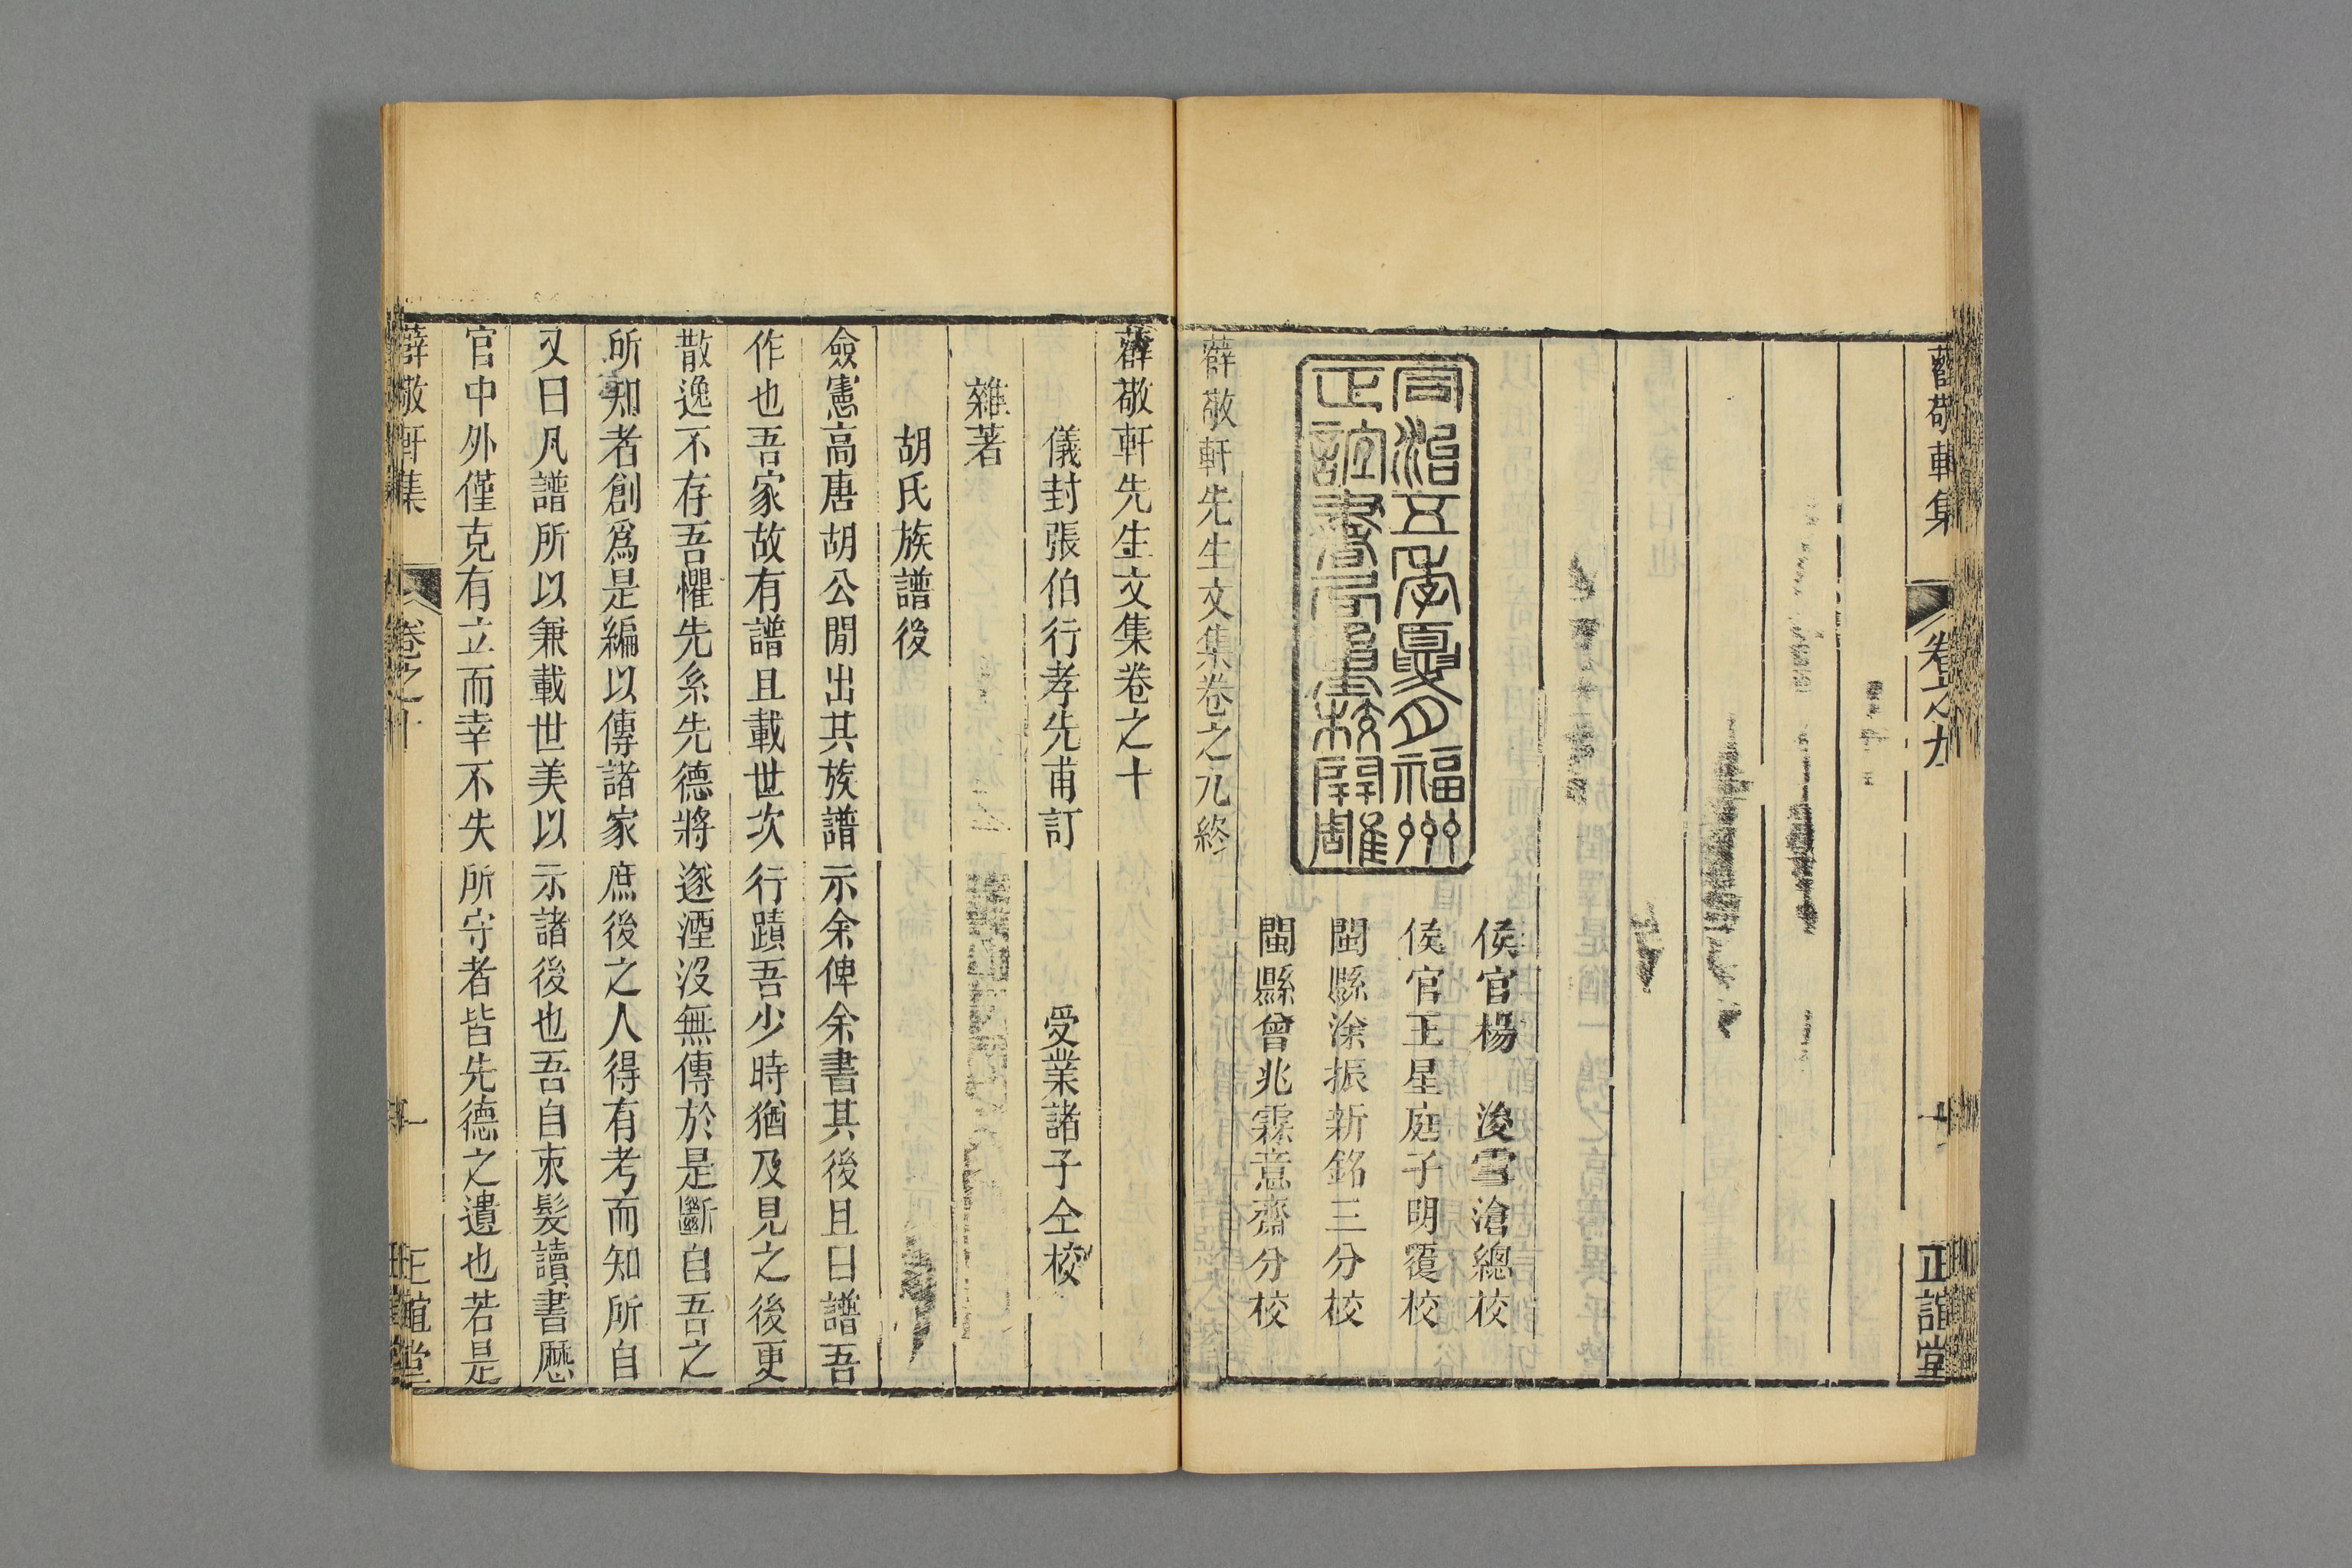 薛敬軒集
卷之九
正誼堂
侯官楊　浚雪滄總校
侯官王星庭子明覆校
閩縣涂振新銘三分校
閩縣曾兆霖意齋分校
同治五年夏月福州
正誼書局重校開雕
薛敬軒先生文集卷之九終
薛敬軒先生文集卷之十
儀封張伯行孝先甫訂　受業諸子仝校
雜著
胡氏族譜後
僉憲高唐胡公閒出其族譜示余俾余書其後且曰譜吾
作也吾家故有譜且載世次行蹟吾少時猶及見之後更
散逸不存吾懼先系先德將遂湮沒無傳於是斷自吾之
所知者創爲是編以傳諸家庶後之人得有考而知所自
又曰凡譜所以兼載世美以示諸後也吾自朿髮讀書歷
官中外僅克有立而幸不失所守者皆先德之遺也若是
薛敬軒集
卷之十
一
正誼堂